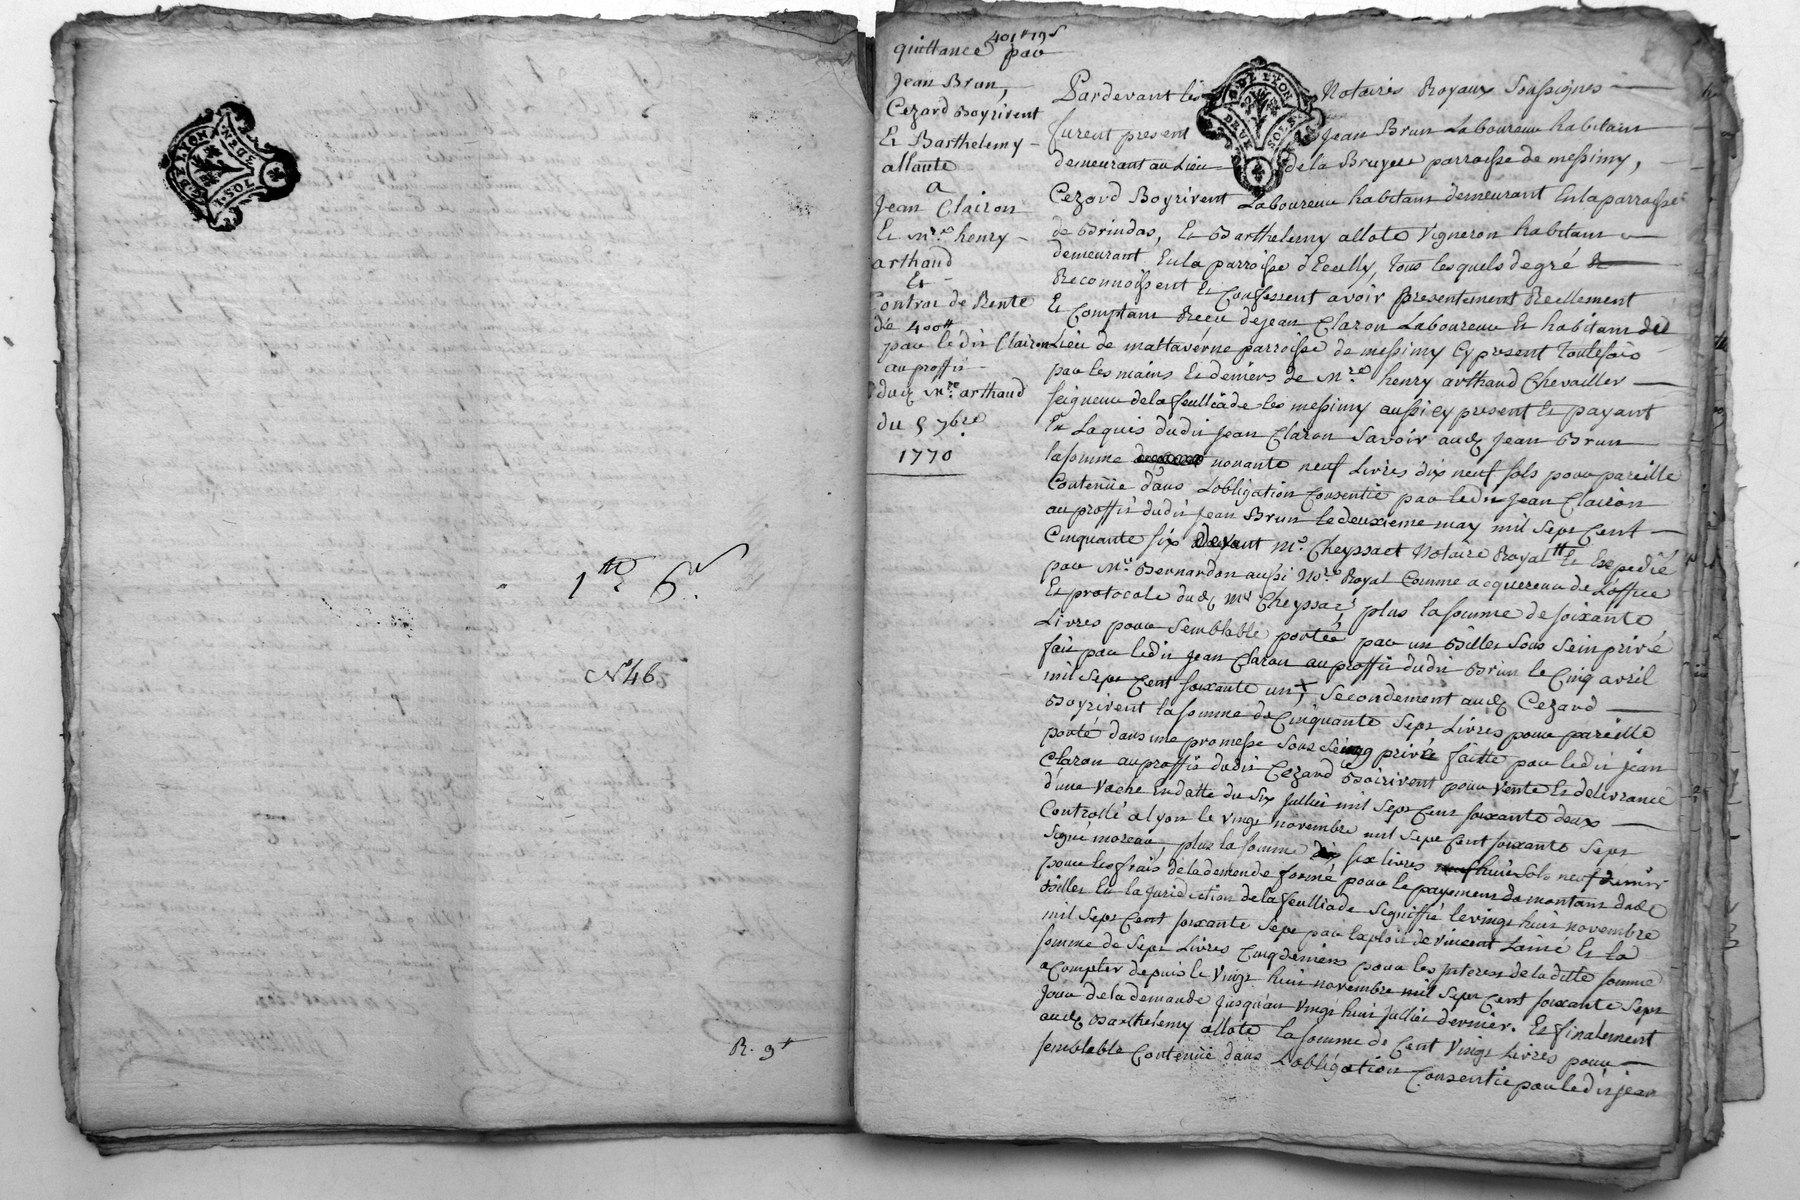 DE LYON
DEUX SOLS
1tt 6s
N° 46
R. 9
401tt 19s
quittance par
Jean Brun,
Cezard Boyrivent
Et Barthelemy
allaute
a
Jean Clairon
Et Mre henry
arthaud
Et
Contrac de Rente
de 400tt
par ledit Clairon
au proffit
dudt Mre arthaud
du 5 7bre
1770
DE LYON
DEUX SOLS
Pardevant les Notaires Royaux Soussignes
furent present Jean Brun Laboureur habitans
demeurant au Lieu de la Bruyere parroisse de messimy,
Cezard Boyrivent Laboureur habitans demeurant En la parroisse
de Brindas, Et Barthelemy allote Vigneron habitans
demeurant En la parroisse d'Ecully, tous lesquels de gré
Reconnoissent Et Confessent avoir presentement Reellement
Et Comptans Receu de jean Claron Laboureur Et habitans du
Lieu de mattaverne parroisse de messimy Cy present toutefois
par les mains Et deniers de Mre henry arthaud Chevallier
seigneur de la feulliade les messimy aussi cy present Et payant
En Laquis dudit jean Claron Savoir audt jean Brun
la somme nonante neuf Livres dix neuf sols pour pareille
Contenüe dans L'obligation Consentie par ledit jean Clairon
au proffit dudit jean Brun le deuxieme may mil Sept Cent
Cinquante six devant Me Cheyssact Notaire Royal Et Expedié
par Me Bernardon aussi Nore Royal Comme acquereur de L'office
Et protocole dudt Me Cheyssac, plus la somme de soixante
Livres pour semblable portée par un Billet Sous Sein privé
fait par ledit jean Claron au proffit dudit Brun le Cinq avril
mil Sept Cent soixante un, Secondement audt Cezard
Boyrivent la somme de Cinquante Sept Livres pour pareille
porté dans une promesse Sous seing privé faitte par ledit jean
Claron au proffit dudit Cezard Boirivent pour Vente Et delivrance
d'une Vache En datte du Six juillet mil Sept Cent soixante deux
Controllé a lyon le vingt novembre mil Sept Cent soixante Sept
Signé moreau, plus la somme de six livres huit Sols neuf deniers
pour les frais de la demende formé pour le payement du montant dudt
Billet En la juridiction de la feulliade Signiffié le vingt huit novembre
mil Sept Cent soixante Sept par Exploit de vincent Lainé Et la
somme de Sept Livres Cinq deniers pour les interest de la ditte somme
a Compter depuis le Vingt huit novembre mil Sept Cent soixante Sept
jour de la demande jusqu'au vingt huit juillet dernier. Et finalement
audt Barthelemy allote la somme de Cent Vingt Livres pour
semblable Contenüe dans L'obligation Consentie par ledit jean